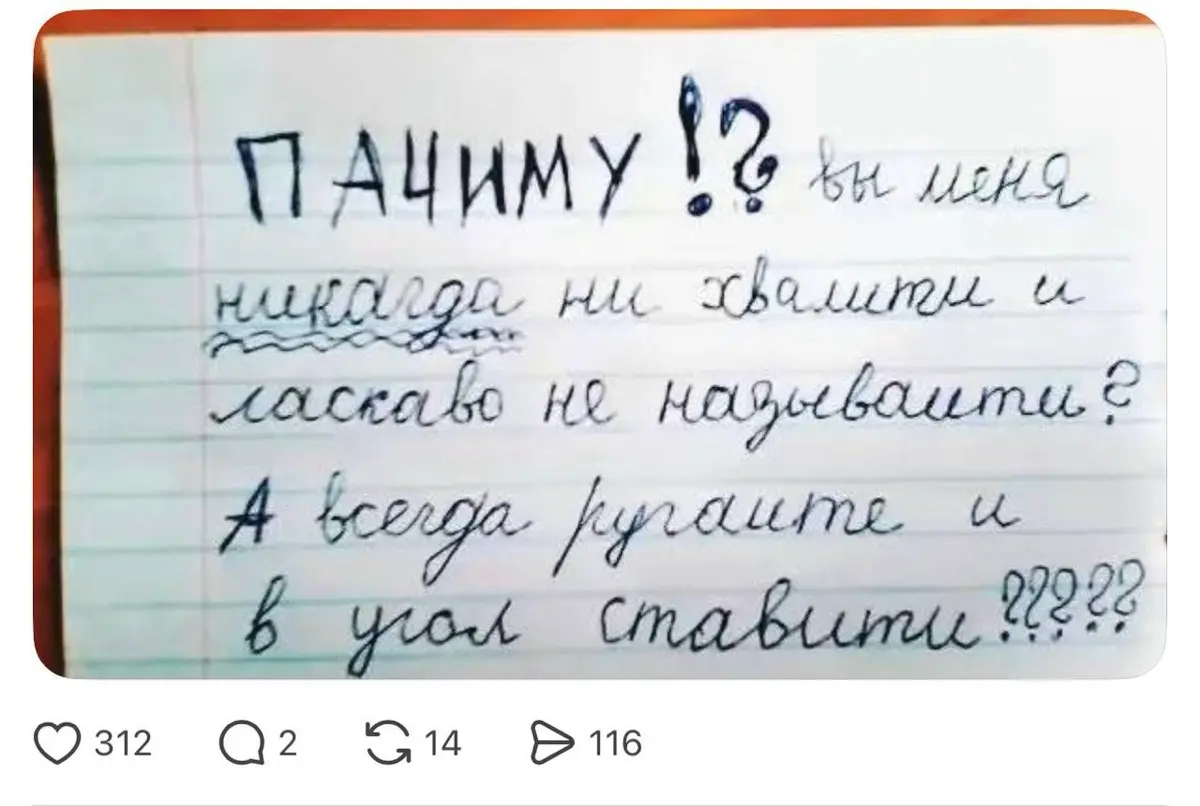 ПАЧИМУ!? вы меня
никагда ни хвалити и
ласкаво не называити?
А всегда ругаите и
в угол ставити?????
312 2 14 116